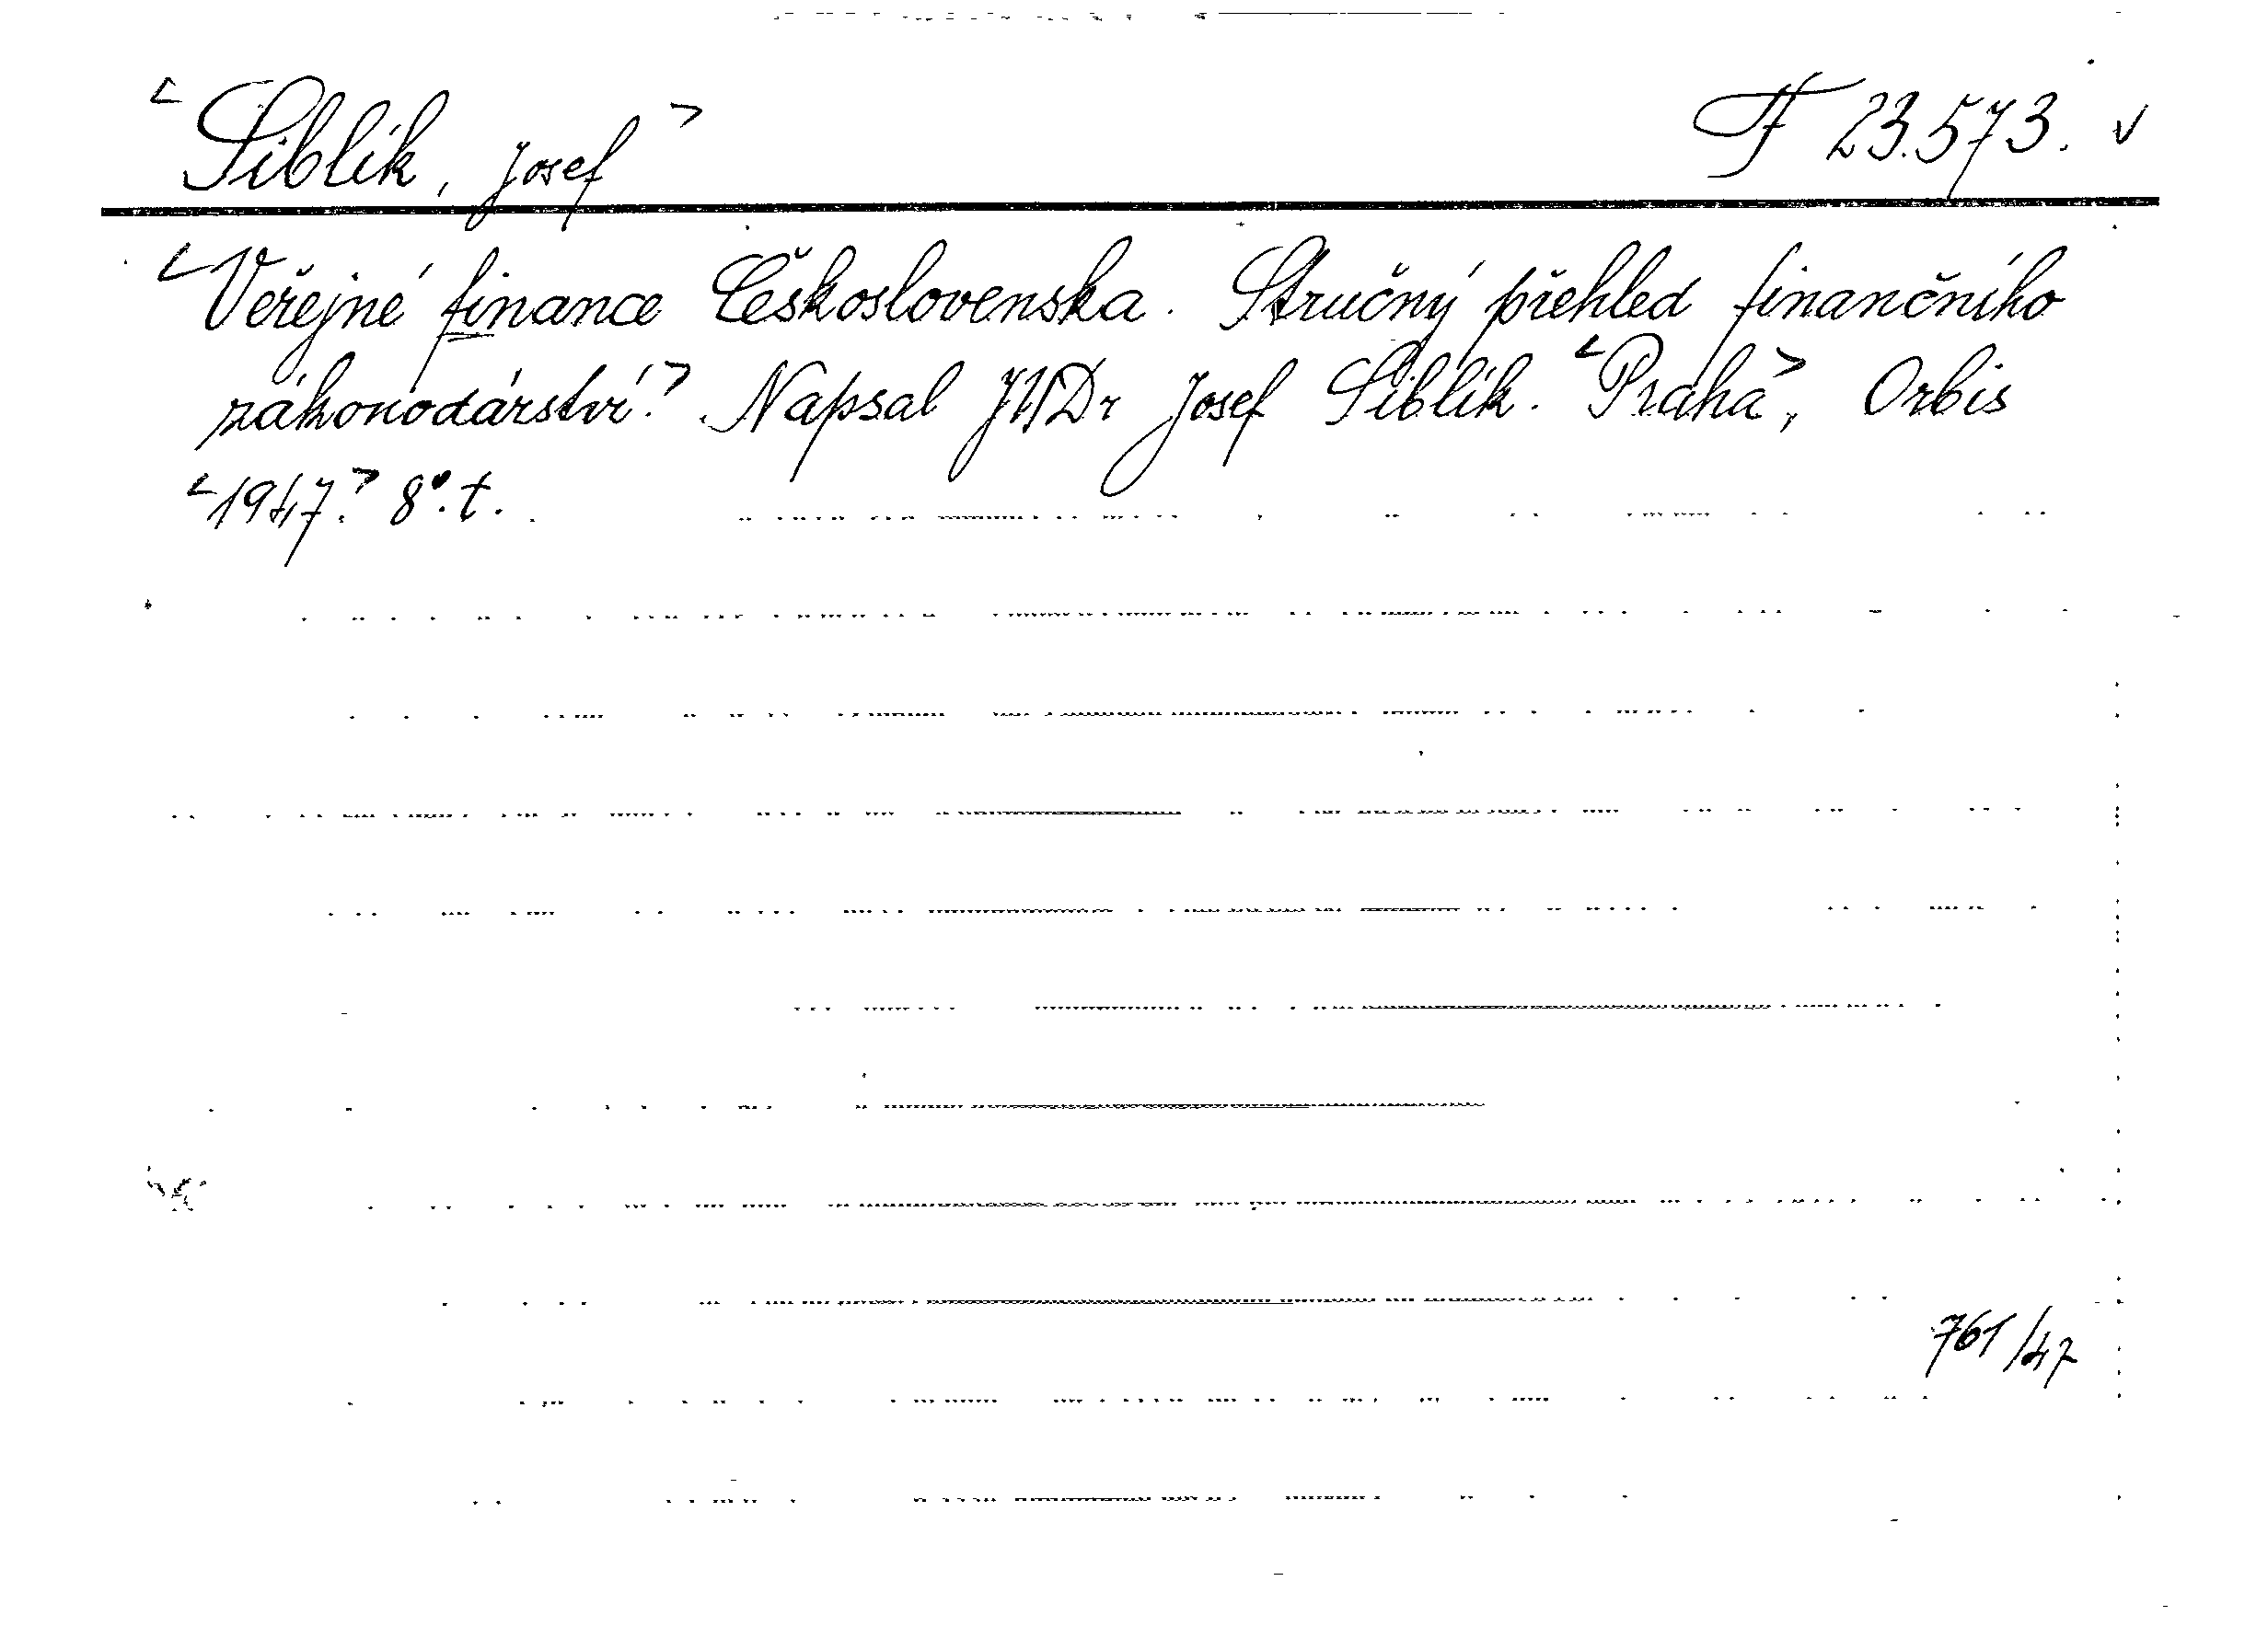 <Siblík, Josef> F 23.573. v
<Veřejné finance Československa. Stručný přehled finančního
zákonodárství.> Napsal JUDr Josef Siblík. <Praha>, Orbis
<1947.> 8°. t.
761/47